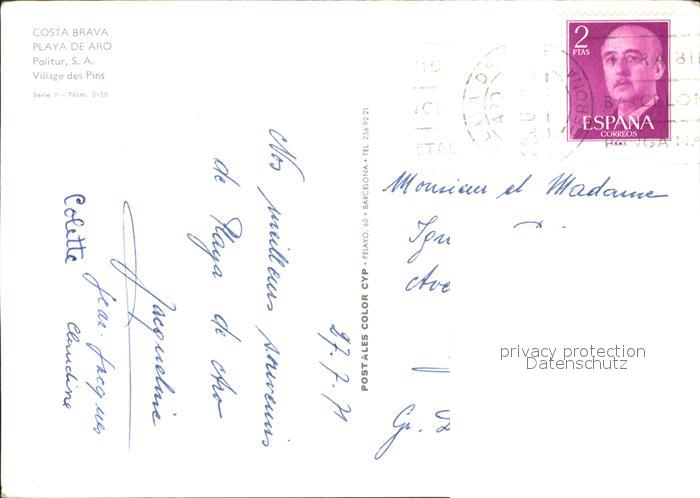 COSTA BRAVA
PLAYA DE ARO
Politur, S. A.
Village des Pins
Serie II - Núm. 2158
2
PTAS
ESPAÑA
CORREOS
BARCELON
27.7.71
Nos meilleurs souvenirs
de Playa de Aro
Jacqueline
Jean-Jacques
Colette Claudine
POSTALES COLOR CYP • PELAYO, 60 • BARCELONA • TEL. 236 92 21
Monsieur et Madame
Ign
Ave
Gr. D
privacy protection
Datenschutz